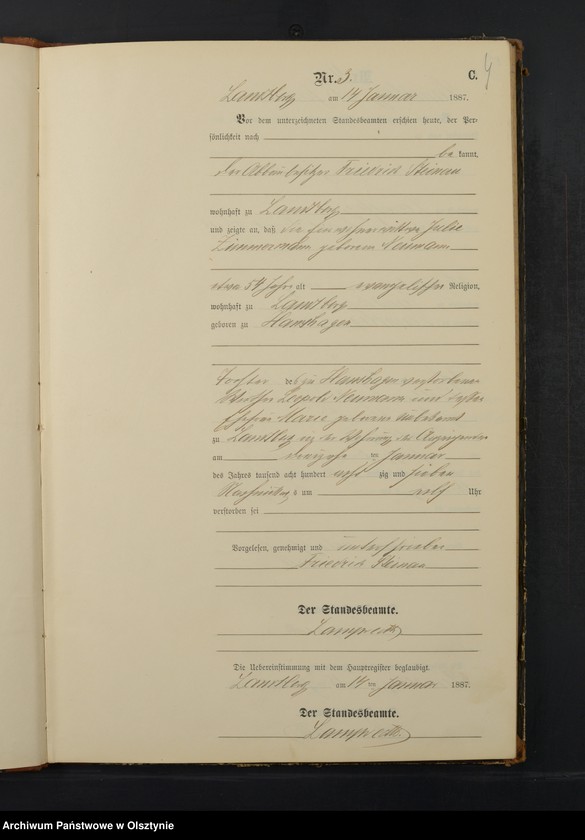 4
Nr. 3. C.
Landsberg am 14 Januar 1887.
Vor dem unterzeichneten Standesbeamten erschien heute, der Per-
sönlichkeit nach
be kannt,
der Friedrich Steinau
wohnhaft zu Landsberg
und zeigte an, daß die Julie
Zimmermann geborene Neumann
etwa 54 Jahre alt evangelischer Religion,
wohnhaft zu Landsberg
geboren zu Hanshagen
Tochter des zu Hanshagen verstorbenen
Leopold Neumann und dessen
Ehefrau Marie geborene
zu Landsberg in der Wohnung des Anzeigenden
am dreizehn ten Januar
des Jahres tausend acht hundert acht zig und sieben
Nachmittags um Uhr
verstorben sei
Vorgelesen, genehmigt und unterschrieben
Friedrich Steinau
Der Standesbeamte.
Die Uebereinstimmung mit dem Hauptregister beglaubigt.
Landsberg am 14 ten Januar 1887.
Der Standesbeamte.
Archiwum Państwowe w Olsztynie